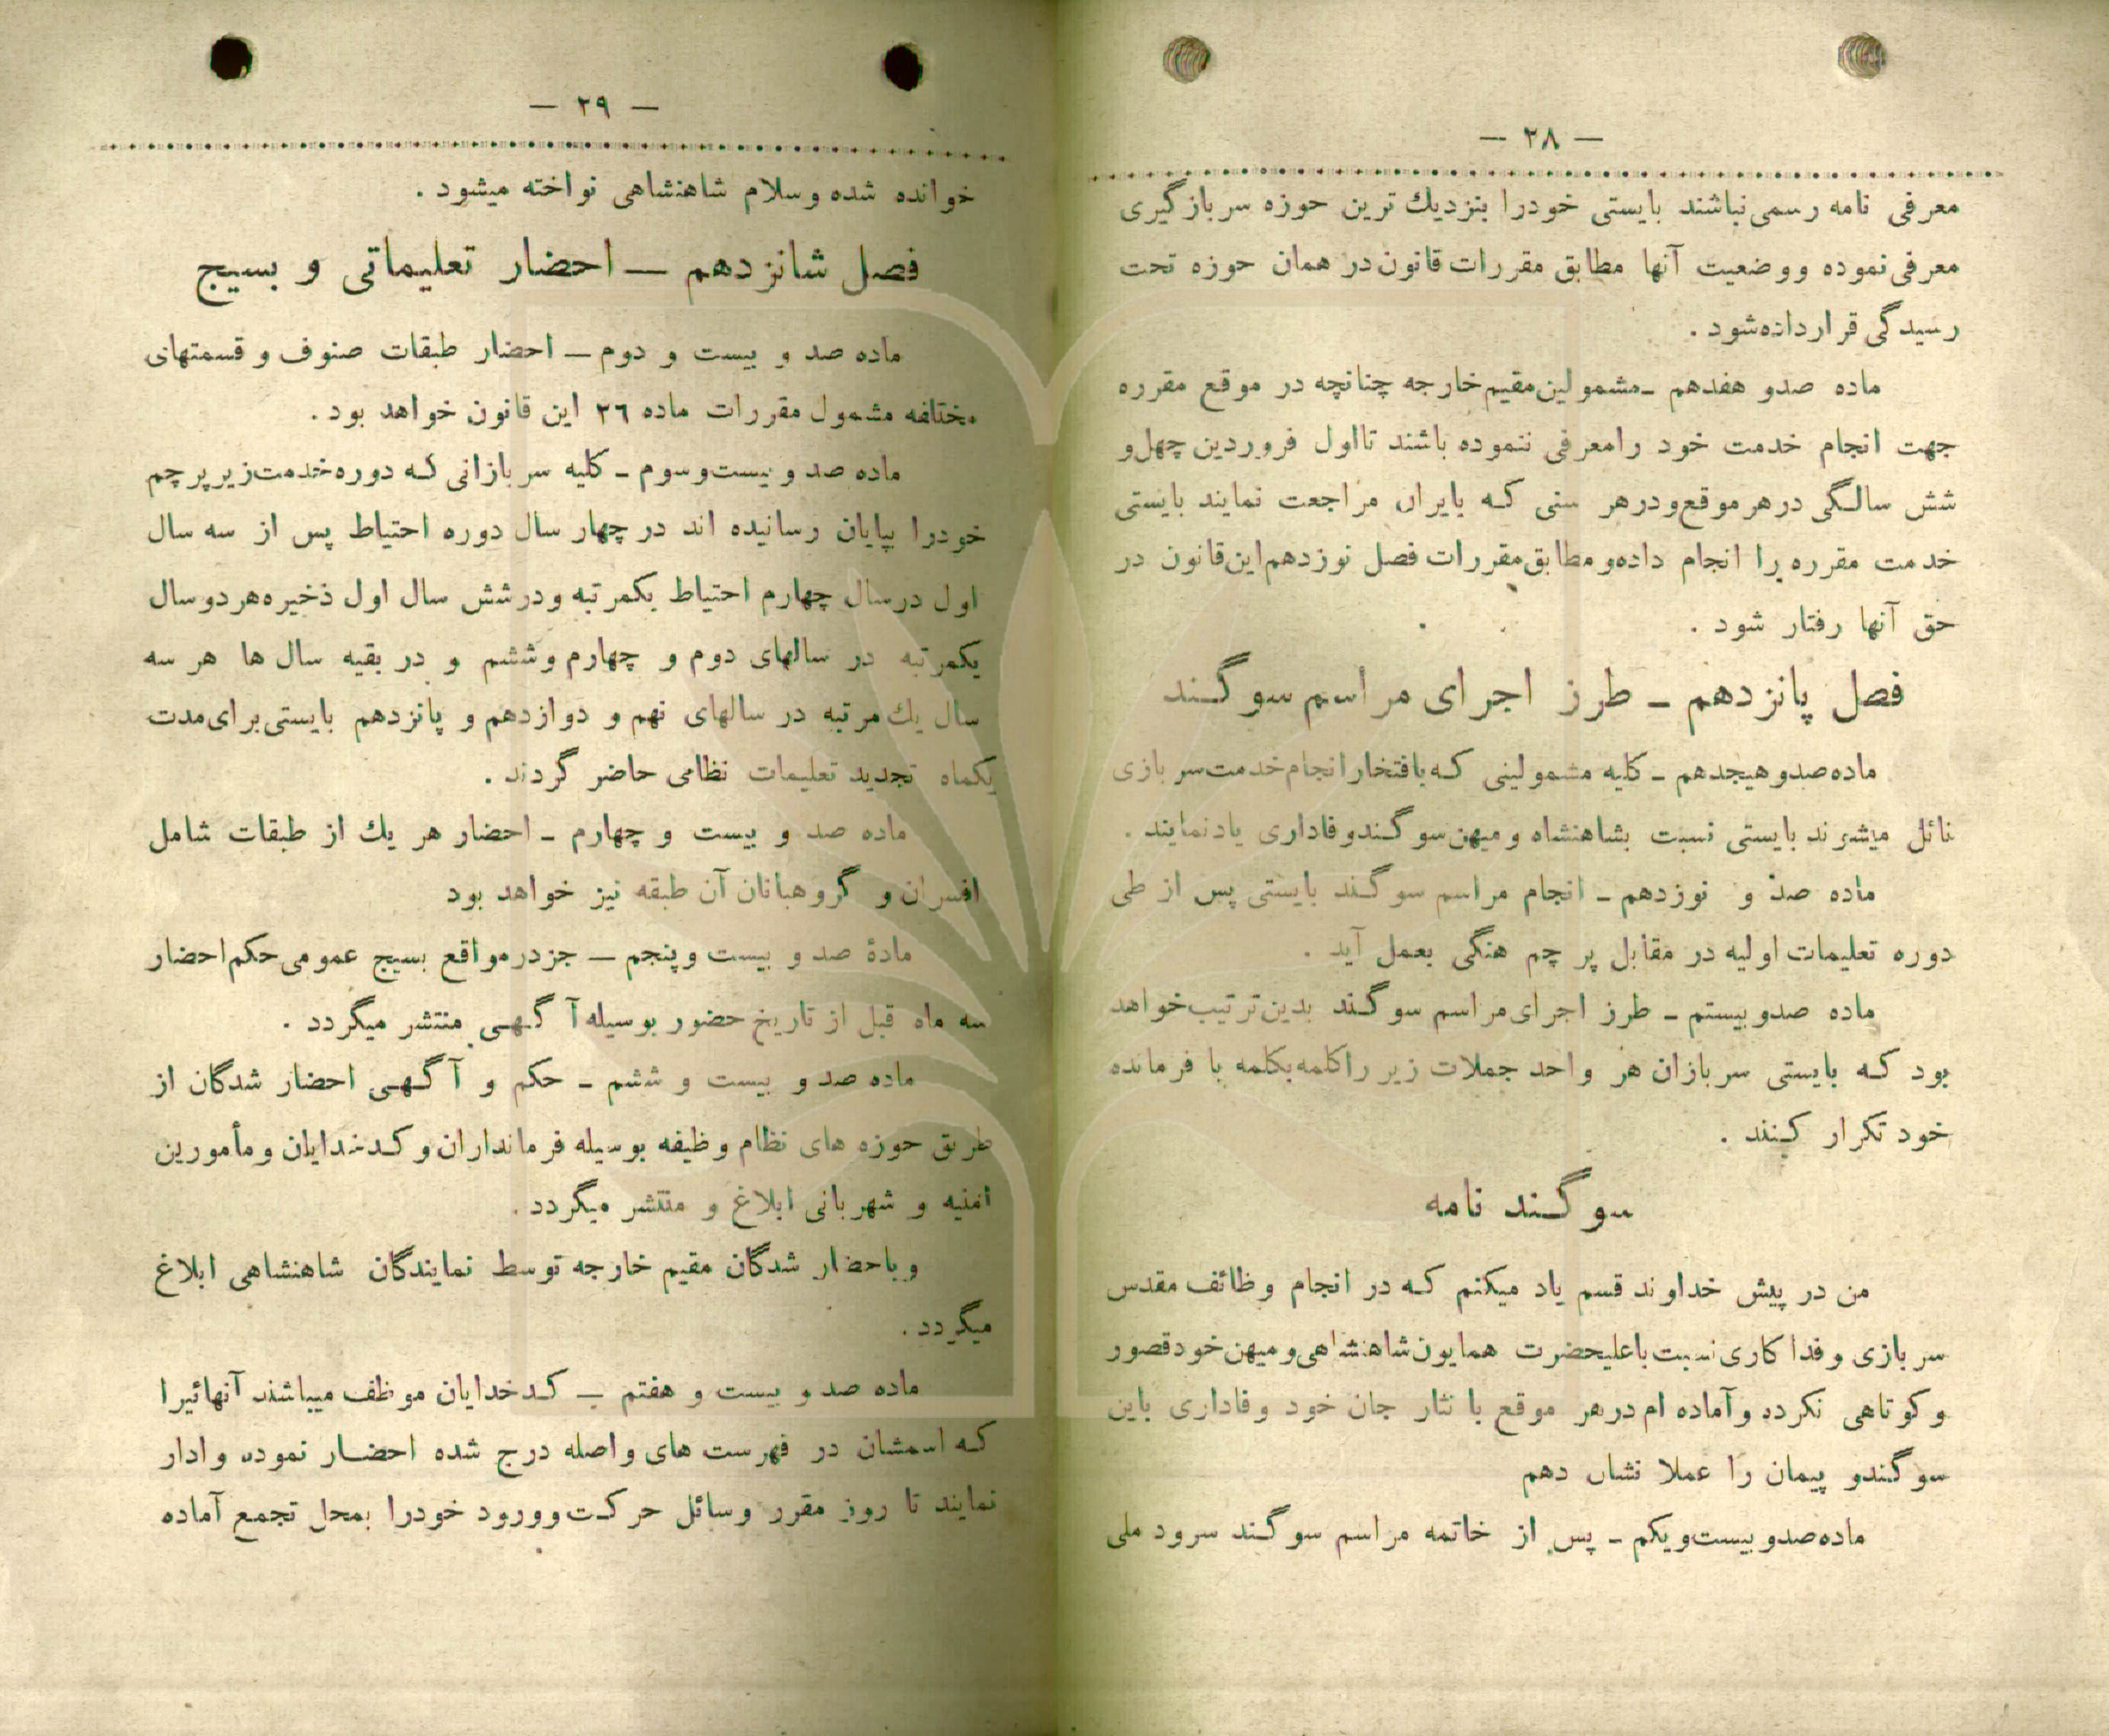 — ۲۸ —
معرفی نامه رسمی نباشند بایستی خودرا بنزدیك ترین حوزه سربازگیری
معرفی نموده ووضعیت آنها مطابق مقررات قانون در همان حوزه تحت
رسیدگی قرارداده‌شود .
ماده صدو هفدهم ـ مشمولین مقیم خارجه چنانچه در موقع مقرره
جهت انجام خدمت خود رامعرفی ننموده باشند تااول فروردین چهل‌و
شش سالگی درهرموقع‌ودرهر سنی که بایران مراجعت نمایند بایستی
خدمت مقرره را انجام داده‌و مطابق‌مقررات فصل نوزدهم‌این‌قانون در
حق آنها رفتار شود .
فصل پانزدهم ـ طرز اجرای مراسم سوگند
ماده صدو هیجدهم ـ کلیه مشمولینی که بافتخار انجام خدمت‌سربازی
نائل میشوند بایستی نسبت بشاهنشاه ومیهن‌سوگندوفاداری یادنمایند .
ماده صد و نوزدهم ـ انجام مراسم سوگند بایستی پس از طی
دوره تعلیمات اولیه در مقابل پرچم هنگی بعمل آید .
ماده صدو بیستم ـ طرز اجرای مراسم سوگند بدین‌ترتیب‌خواهد
بود که بایستی سربازان هر واحد جملات زیر راکلمه‌بکلمه با فرمانده
خود تکرار کنند .
سوگند نامه
من در پیش خداوند قسم یاد میکنم که در انجام وظائف مقدس
سربازی وفداکاری‌نسبت‌باعلیحضرت همایون‌شاهنشاهی‌ومیهن‌خودقصور
وکوتاهی نکرده وآماده ام درهر موقع با نثار جان خود وفاداری باین
سوگندو پیمان را عملا نشان دهم
ماده صدو بیست‌ویکم ـ پس از خاتمه مراسم سوگند سرود ملی
— ۲۹ —
خوانده شده وسلام شاهنشاهی نواخته میشود .
فصل شانزدهم — احضار تعلیماتی و بسیج
ماده صد و بیست و دوم — احضار طبقات صنوف و قسمتهای
مختلفه مشمول مقررات ماده ۲۶ این قانون خواهد بود .
ماده صد و بیست‌وسوم ـ کلیه سربازانی که دوره‌خدمت‌زیرپرچم
خودرا بپایان رسانیده اند در چهار سال دوره احتیاط پس از سه سال
اول درسال چهارم احتیاط یکمرتبه ودرشش سال اول ذخیره‌هردوسال
یکمرتبه در سالهای دوم و چهارم وششم و در بقیه سال ها هر سه
سال یك مرتبه در سالهای نهم و دوازدهم و پانزدهم بایستی‌برای‌مدت
یکماه تجدید تعلیمات نظامی حاضر گردند .
ماده صد و بیست و چهارم ـ احضار هر یك از طبقات شامل
افسران و گروهبانان آن طبقه نیز خواهد بود
مادهٔ صد و بیست وپنجم — جزدرمواقع بسیج عمومی حکم احضار
سه ماه قبل از تاریخ حضور بوسیله آگهی منتشر میگردد .
ماده صد و بیست و ششم ـ حکم و آگهی احضار شدگان از
طریق حوزه های نظام وظیفه بوسیله فرمانداران وکدخدایان ومأمورین
امنیه و شهربانی ابلاغ و منتشر میگردد .
وباحضار شدگان مقیم خارجه توسط نمایندگان شاهنشاهی ابلاغ
میگردد .
ماده صد و بیست و هفتم ـ کدخدایان موظف میباشند آنهائیرا
که اسمشان در فهرست های واصله درج شده احضار نموده وادار
نمایند تا روز مقرر وسائل حرکت‌وورود خودرا بمحل تجمع آماده